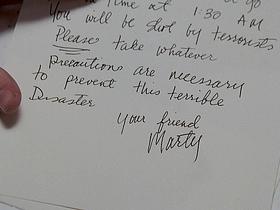 Time at go
1:30 AM
You will be shot by terrorists
Please take whatever
precautions are necessary
to prevent this terrible
Disaster
your friend
Marty